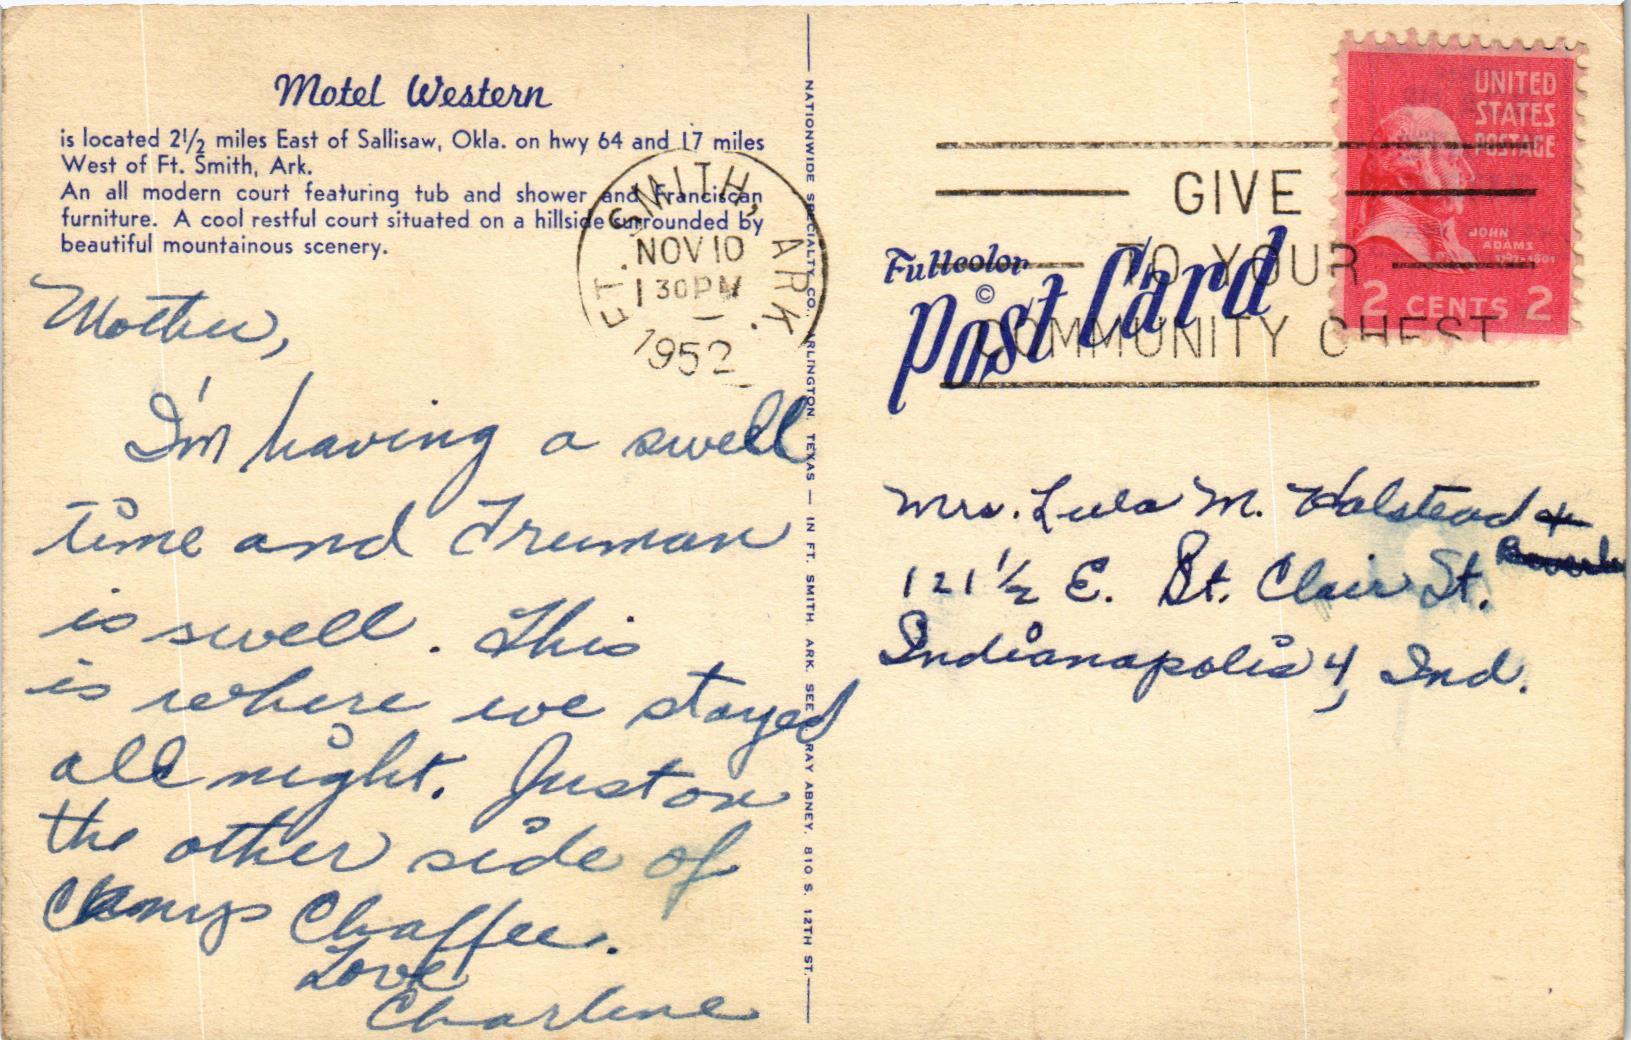 Motel Western
is located 2½ miles East of Sallisaw, Okla. on hwy 64 and 17 miles
West of Ft. Smith, Ark.
An all modern court featuring tub and shower and Franciscan
furniture. A cool restful court situated on a hillside surrounded by
beautiful mountainous scenery.
Mother,
I'm having a swell
time and Truman
is swell. This
is where we stayed
all night. Just on
the other side of
Camp Chaffee.
Love
Charlene
FT. SMITH, ARK.
NOV 10
1 30 PM
1952
NATIONWIDE SPECIALTY CO., ARLINGTON, TEXAS — IN FT. SMITH, ARK. SEE RAY ABNEY, 810 S. 12TH ST.
GIVE
TO YOUR
COMMUNITY CHEST
Fullcolor
©
Post Card
UNITED
STATES
POSTAGE
JOHN
ADAMS
1797-1801
2 CENTS 2
Mrs. Lula M. Halstead +
Beverly
121½ E. St. Clair St.
Indianapolis 4, Ind.